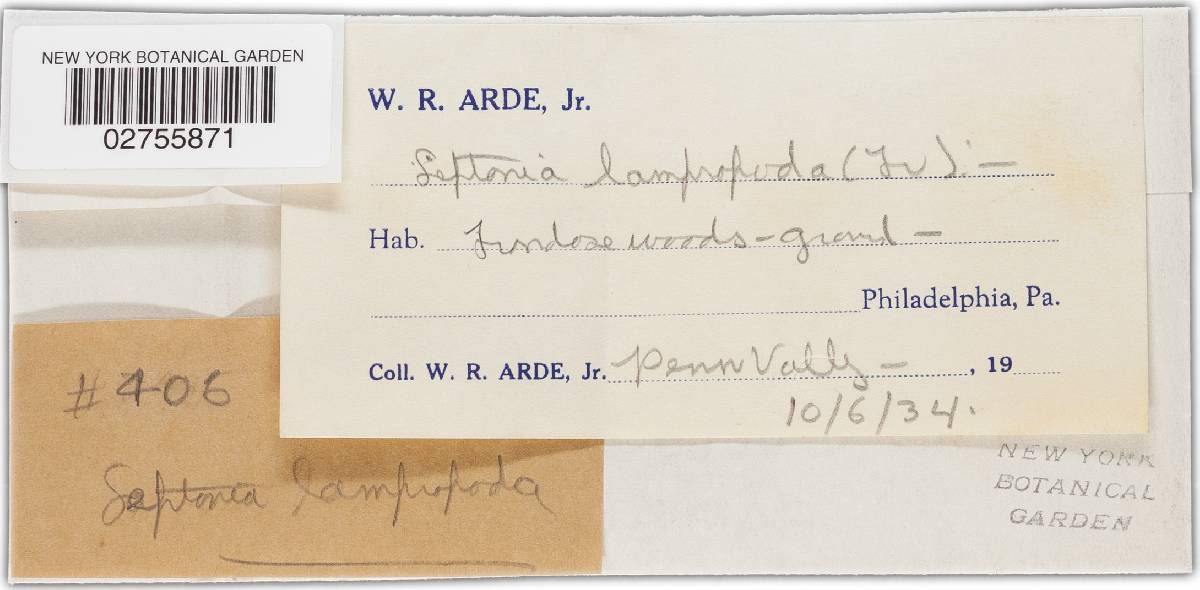 NEW YORK BOTANICAL GARDEN
02755871
W. R. ARDE, Jr.
Septonia lampropoda (Fr). –
Hab. Frondose woods – ground –
Philadelphia, Pa.
Coll. W. R. ARDE, Jr. Penn Valley – , 19
10/6/34.
#406
Septonia lampropoda
NEW YORK
BOTANICAL
GARDEN